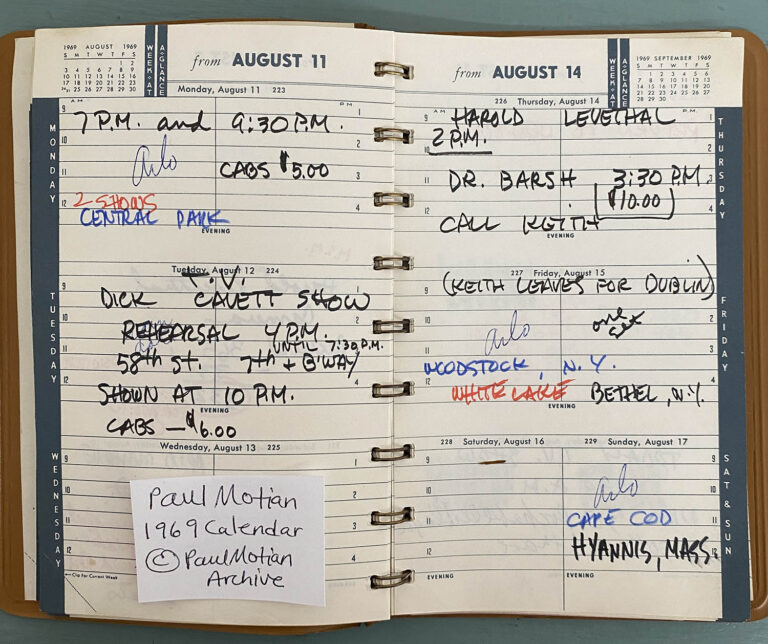 1969 AUGUST 1969
S M T W T F S
1 2
3 4 5 6 7 8 9
10 11 12 13 14 15 16
17 18 19 20 21 22 23
24/31 25 26 27 28 29 30
WEEK·AT
A·GLANCE
from AUGUST 11
Monday, August 11 223
MONDAY
7 P.M. and 9:30 P.M.
Arlo
CABS $5.00
2 SHOWS
CENTRAL PARK
EVENING
Tuesday, August 12 224
TUESDAY
T.V.
DICK CAVETT SHOW
REHEARSAL 4 P.M.
UNTIL 7:30 P.M.
58th St. 7th + B'WAY
SHOWN AT 10 P.M.
EVENING
CABS — $6.00
Wednesday, August 13 225
WEDNESDAY
Paul Motian
1969 Calendar
© Paul Motian
Archive
Clip For Current Week
from AUGUST 14
WEEK·AT
A·GLANCE
1969 SEPTEMBER 1969
S M T W T F S
1 2 3 4 5 6
7 8 9 10 11 12 13
14 15 16 17 18 19 20
21 22 23 24 25 26 27
28 29 30
226 Thursday, August 14
THURSDAY
HAROLD LEVETHAL
2 P.M.
DR. BARSH 3:30 P.M.
$10.00
CALL KEITH
EVENING
227 Friday, August 15
FRIDAY
(KEITH LEAVES FOR DUBLIN)
Arlo
one set
WOODSTOCK, N.Y.
WHITE LAKE BETHEL, N.Y.
EVENING
228 Saturday, August 16
229 Sunday, August 17
SAT & SUN
Arlo
CAPE COD
HYANNIS, MASS.
EVENING
EVENING